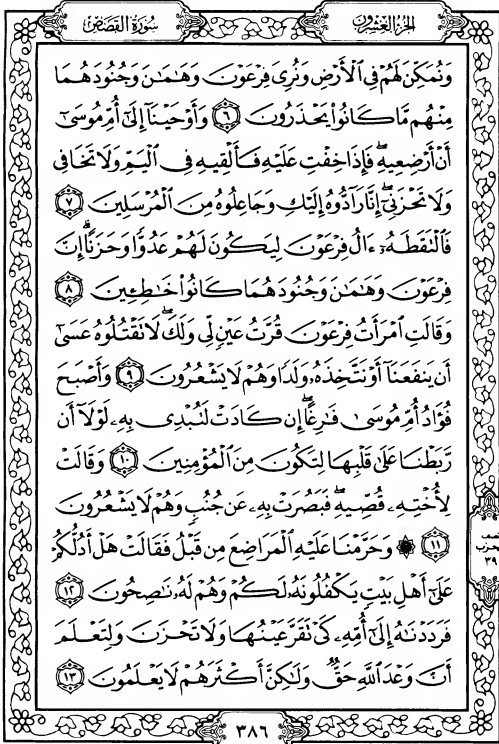 سُورَةُ القَصَصِ
الجزء العشرون
وَنُمَكِّنَ لَهُمْ فِي الْأَرْضِ وَنُرِيَ فِرْعَوْنَ وَهَامَانَ وَجُنُودَهُمَا
مِنْهُم مَّا كَانُوا يَحْذَرُونَ ٦ وَأَوْحَيْنَا إِلَىٰ أُمِّ مُوسَىٰ
أَنْ أَرْضِعِيهِ ۖ فَإِذَا خِفْتِ عَلَيْهِ فَأَلْقِيهِ فِي الْيَمِّ وَلَا تَخَافِي
وَلَا تَحْزَنِي ۖ إِنَّا رَادُّوهُ إِلَيْكِ وَجَاعِلُوهُ مِنَ الْمُرْسَلِينَ ٧
فَالْتَقَطَهُ ءَالُ فِرْعَوْنَ لِيَكُونَ لَهُمْ عَدُوًّا وَحَزَنًا ۗ إِنَّ
فِرْعَوْنَ وَهَامَانَ وَجُنُودَهُمَا كَانُوا خَاطِئِينَ ٨
وَقَالَتِ امْرَأَتُ فِرْعَوْنَ قُرَّتُ عَيْنٍ لِّي وَلَكَ ۖ لَا تَقْتُلُوهُ عَسَىٰ
أَن يَنفَعَنَا أَوْ نَتَّخِذَهُ وَلَدًا وَهُمْ لَا يَشْعُرُونَ ٩ وَأَصْبَحَ
فُؤَادُ أُمِّ مُوسَىٰ فَارِغًا ۖ إِن كَادَتْ لَتُبْدِي بِهِ لَوْلَا أَن
رَّبَطْنَا عَلَىٰ قَلْبِهَا لِتَكُونَ مِنَ الْمُؤْمِنِينَ ١٠ وَقَالَتْ
لِأُخْتِهِ قُصِّيهِ ۖ فَبَصُرَتْ بِهِ عَن جُنُبٍ وَهُمْ لَا يَشْعُرُونَ
١١ ۞ وَحَرَّمْنَا عَلَيْهِ الْمَرَاضِعَ مِن قَبْلُ فَقَالَتْ هَلْ أَدُلُّكُمْ
عَلَىٰ أَهْلِ بَيْتٍ يَكْفُلُونَهُ لَكُمْ وَهُمْ لَهُ نَاصِحُونَ ١٢
فَرَدَدْنَاهُ إِلَىٰ أُمِّهِ كَيْ تَقَرَّ عَيْنُهَا وَلَا تَحْزَنَ وَلِتَعْلَمَ
أَنَّ وَعْدَ اللَّهِ حَقٌّ وَلَٰكِنَّ أَكْثَرَهُمْ لَا يَعْلَمُونَ ١٣
٣٩
٣٨٦